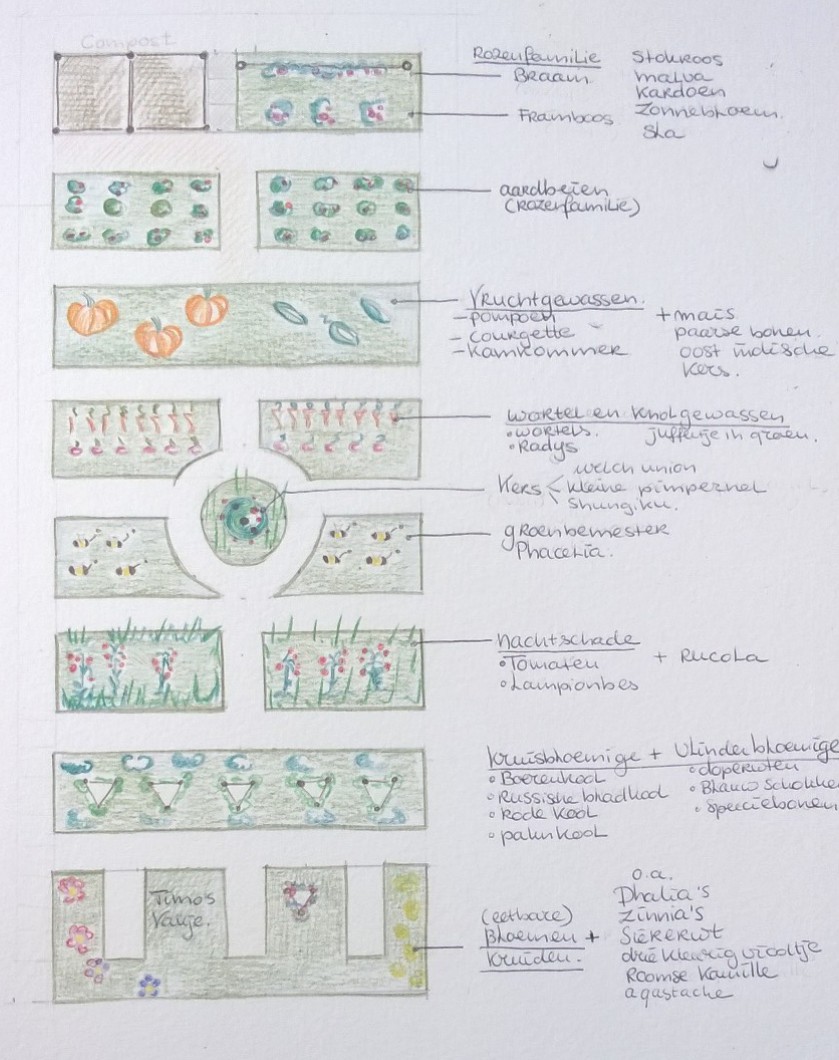 Compost
Rozenfamilie
Braam
Framboos
Stokroos
malva
kardoen
Zonnebloem.
Sla
aardbeien
(Rozenfamilie)
Vruchtgewassen.
- pompoen
- courgette
- Komkommer
+ mais
paarse bonen.
oost indische
kers.
wortel en knolgewassen
• wortels.
• Radys
juffertje in groen.
Kers
welch union
kleine pimpernel
Shungiku.
groenbemester
Phacelia.
nachtschade
• Tomaten
• Lampionbes
+ Rucola
kruisbloemige + Vlinderbloemige
• Boerenkool
• Russishe bladkool
• Rode kool
• palmkool
• doperwten
• Blauw Schokker
• Speciebonen
Timo's
Vakje.
(eetbare)
Bloemen +
kruiden.
o.a.
Dhalia's
Zinnia's
Siererwt
drie kleurig viooltje
Roomse kamille
agastache